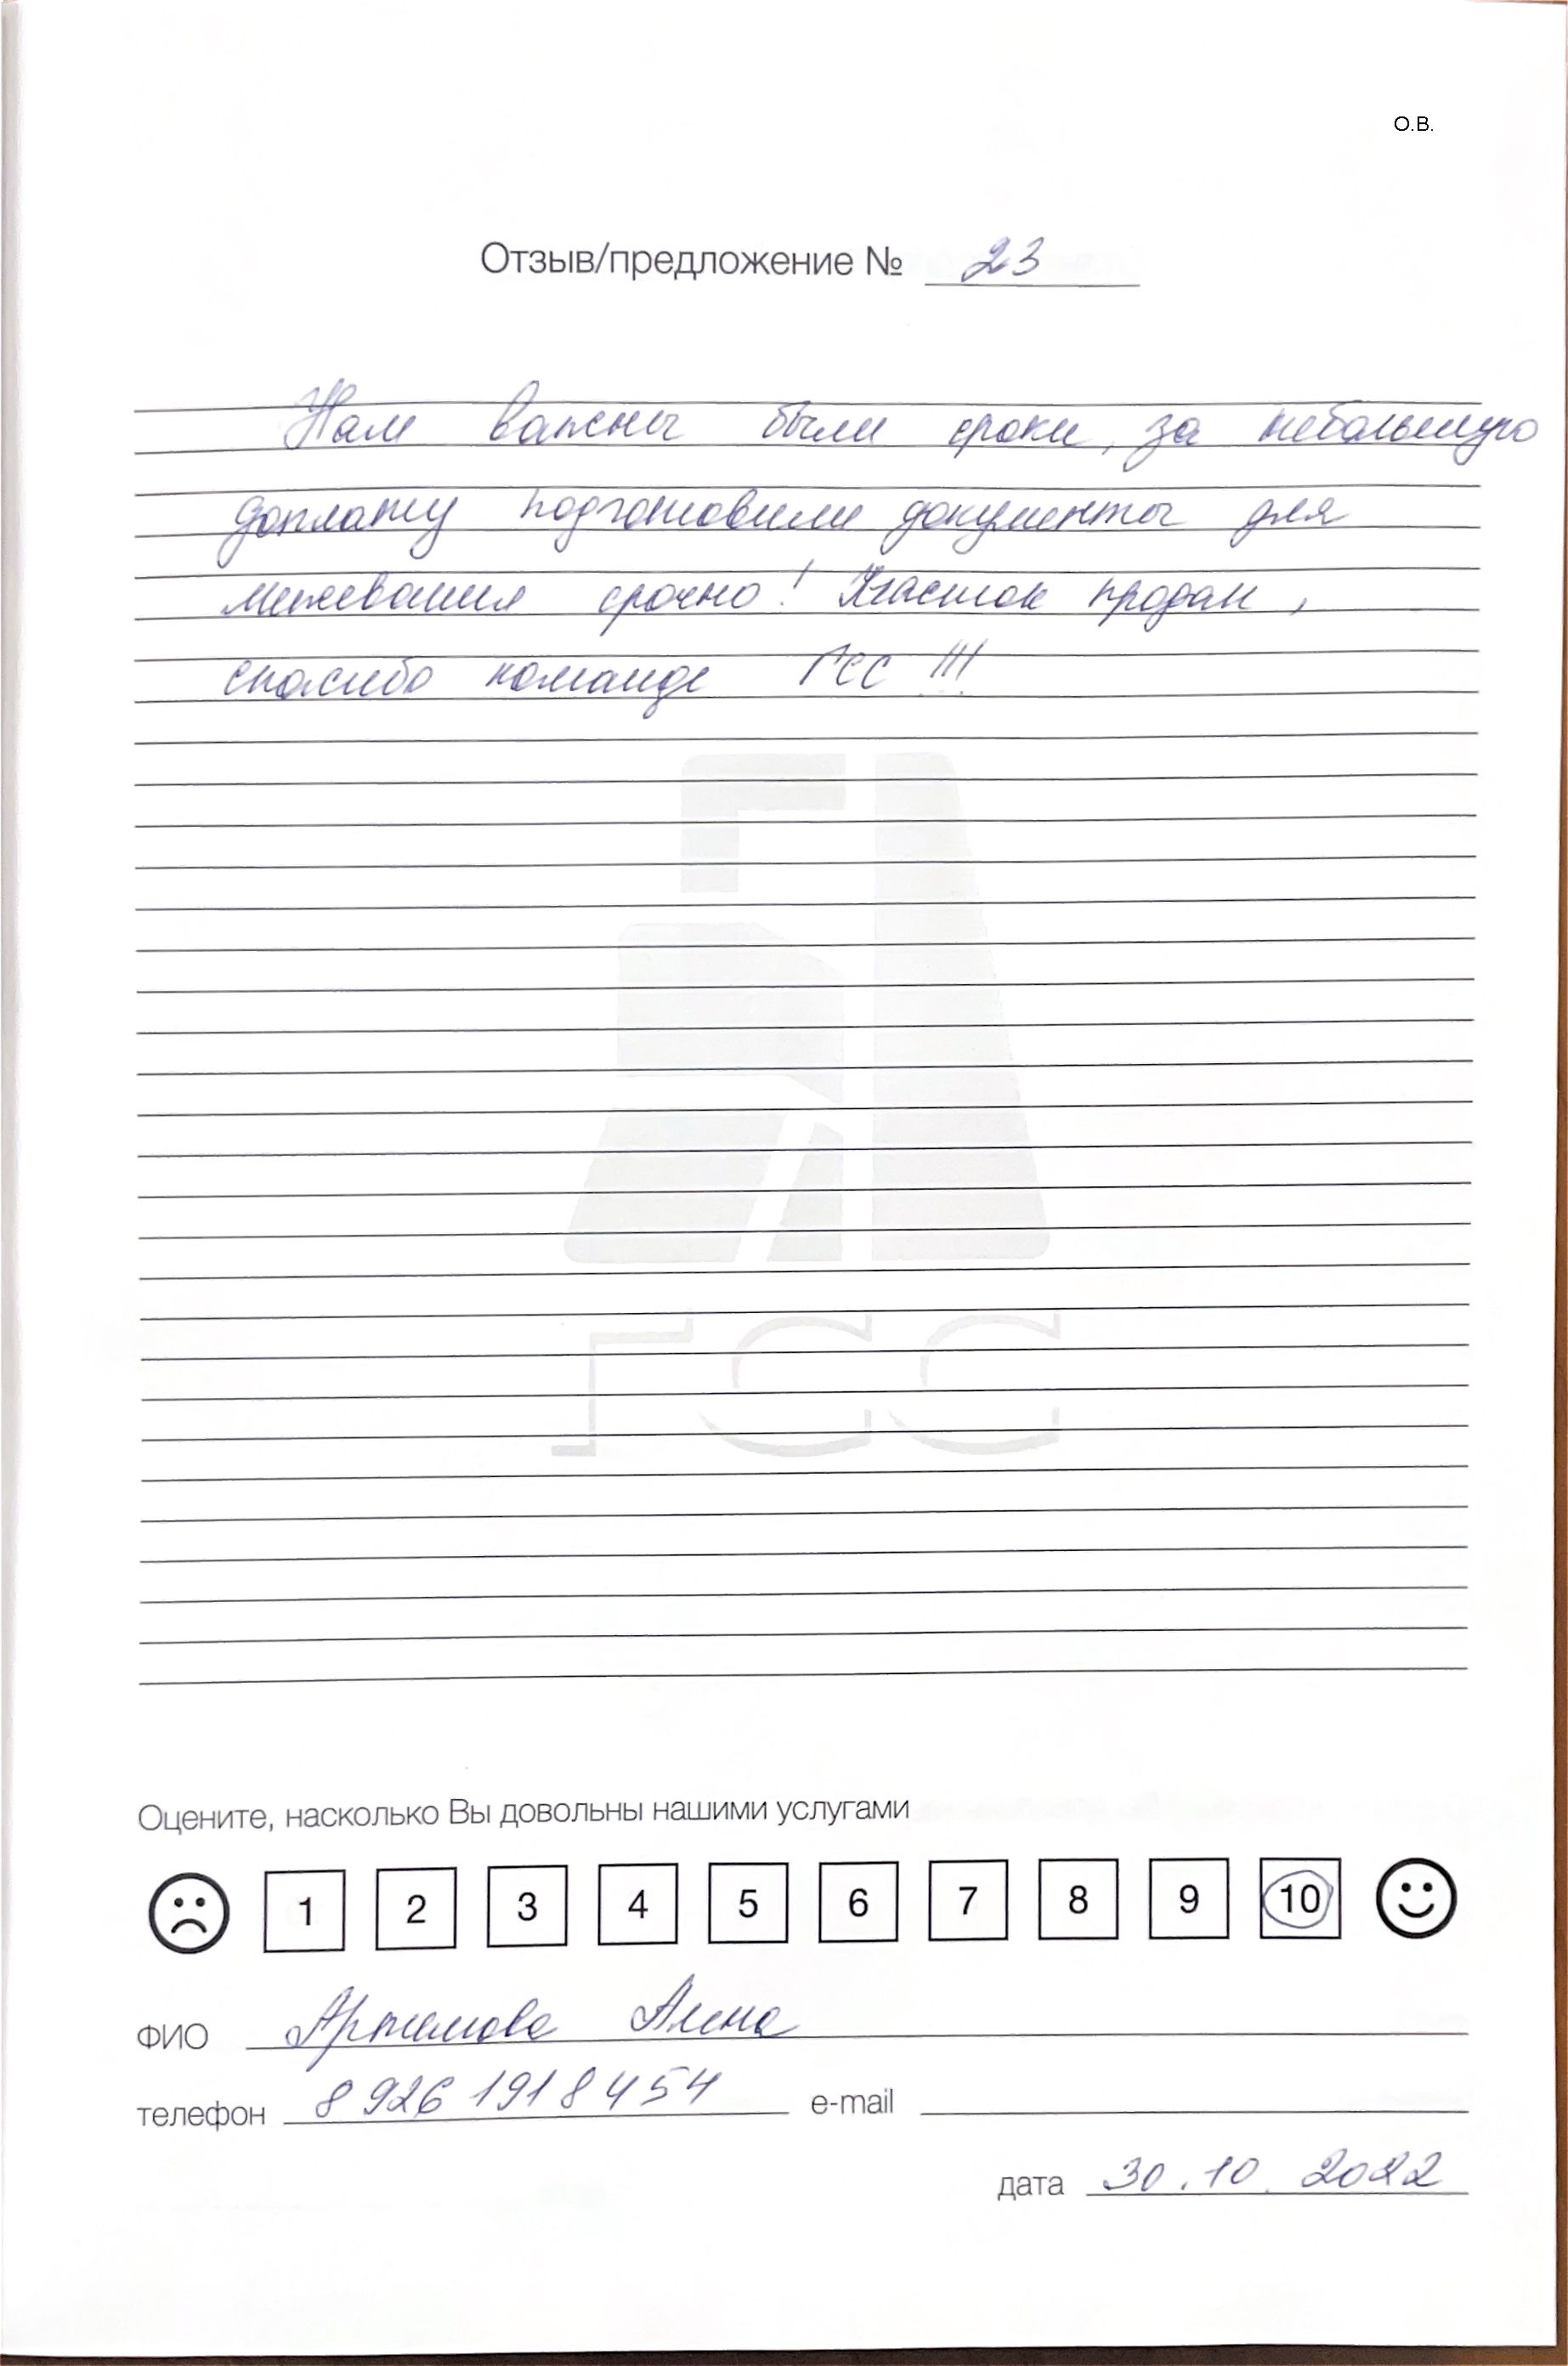 О.В.
Отзыв/предложение № 23
Нам важны были сроки, за небольшую
доплату подготовили документы для
межевания срочно! Участок продан,
спасибо команде ГСС !!!
ГСС
Оцените, насколько Вы довольны нашими услугами
1 2 3 4 5 6 7 8 9 10
ФИО Артемова Анна
телефон 8 926 191 8 454 e-mail
дата 30.10.2022